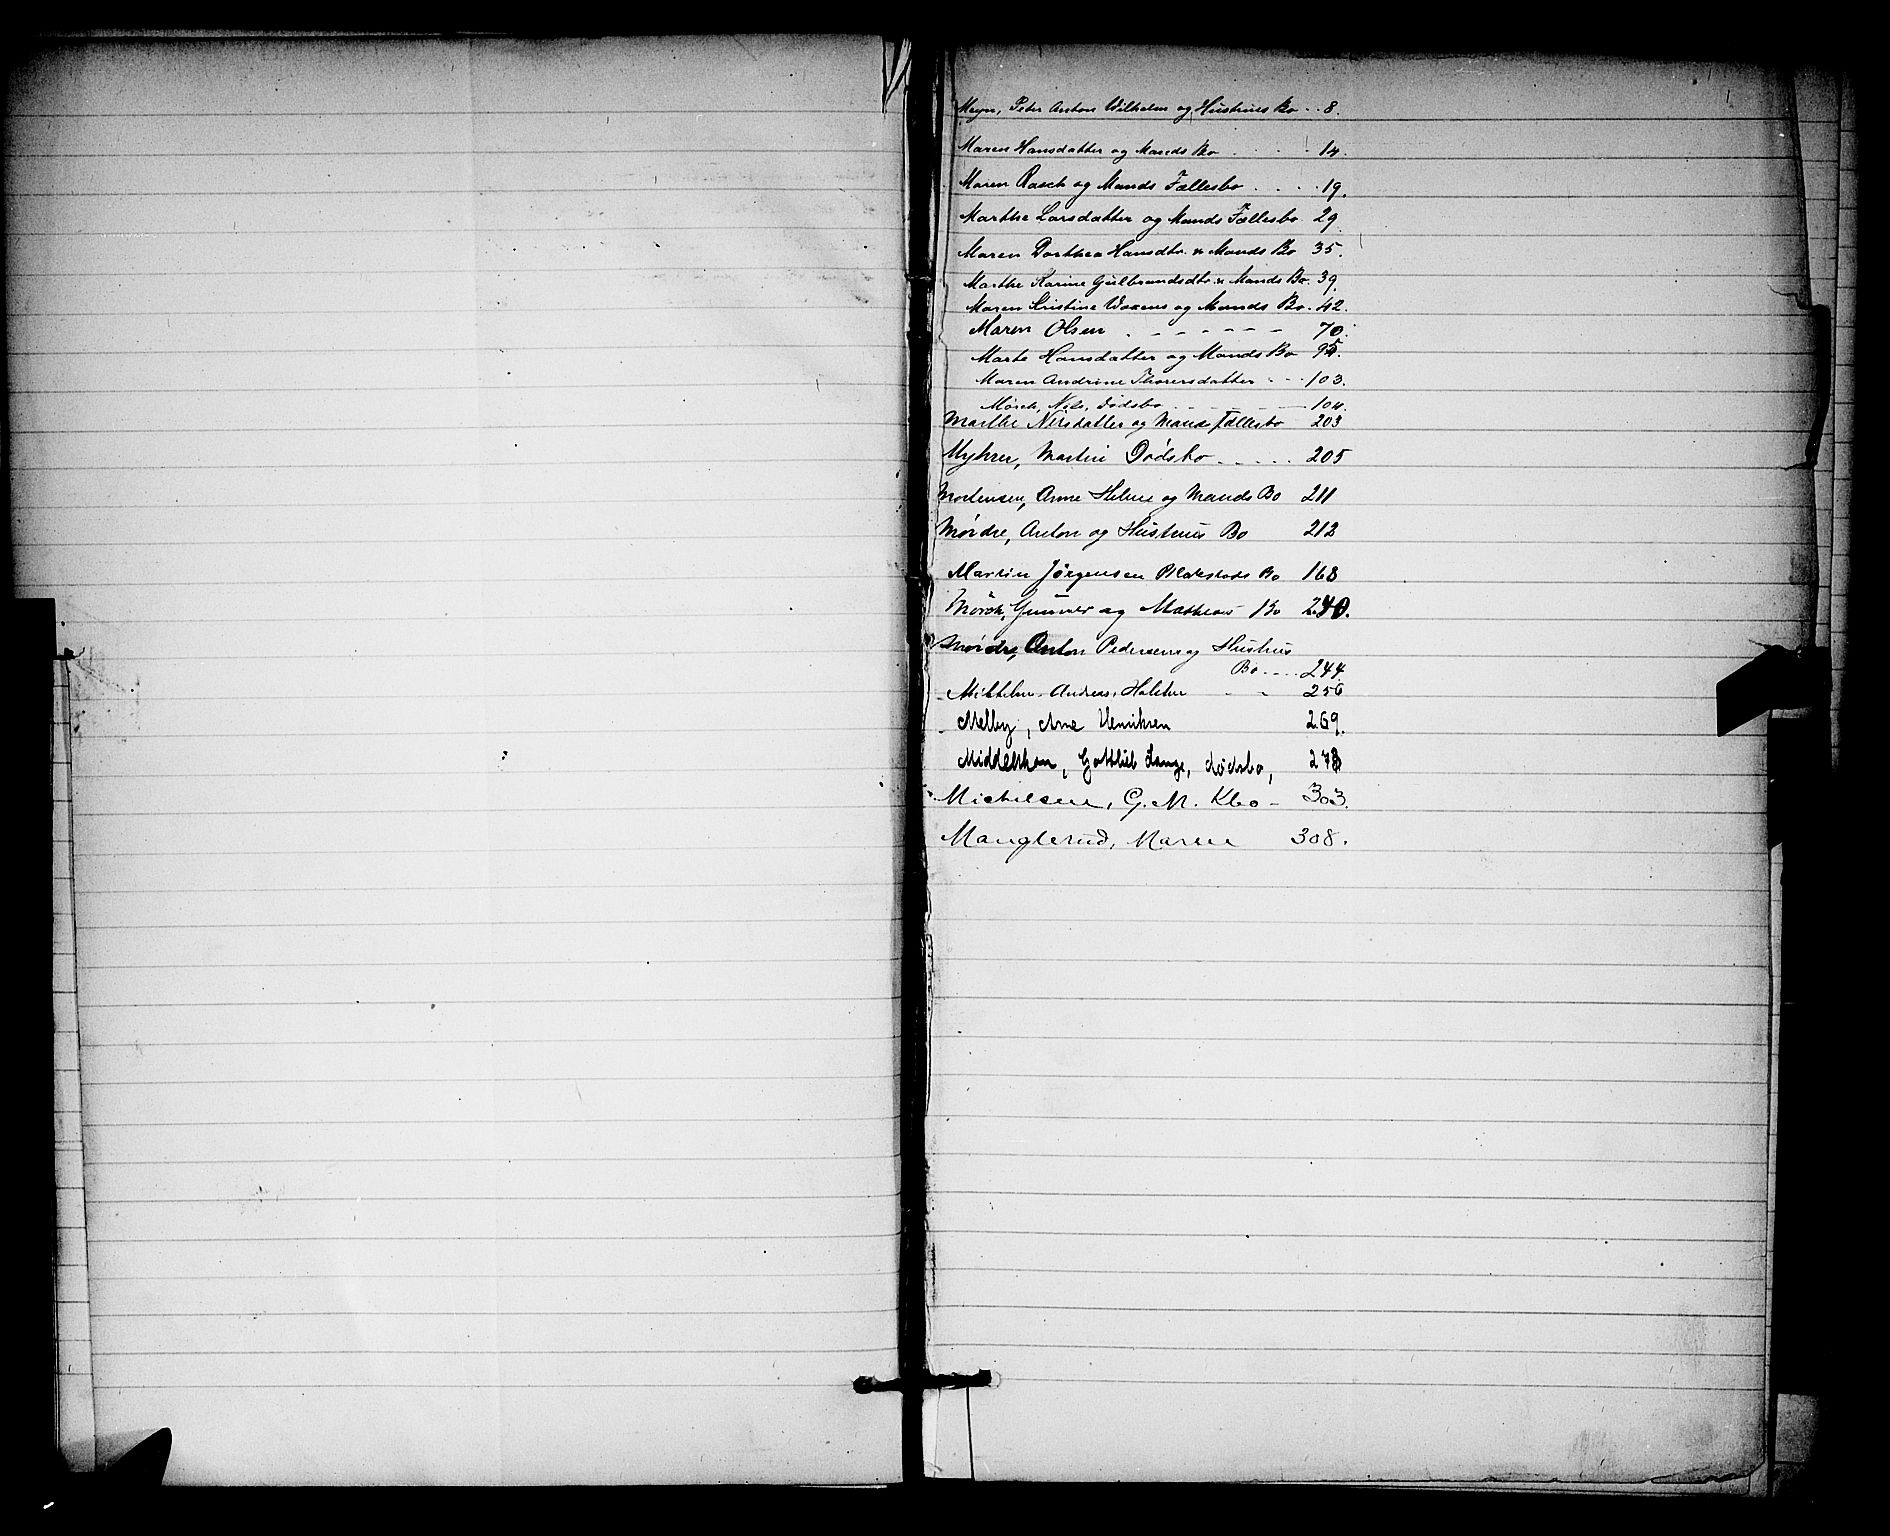 Meyn, Peter Anton Wilhelm og Hustrues Bo .. 8.
Maren Hansdatter og Mands Bo ..... 14.
Maren Rasch og Mands Fællesbo .... 19.
Marthe Larsdatter og Mands Fællesbo 29
Maren Dorthea Hansdtr. & Mands Bo 35.
Marthe Karine Gulbrandsdtr. & Mands Bo. 39.
Maren Kristine og Mands Bo. 42.
Maren Olsen . - - - - - - 70.
Marte Hansdatter og Mands Bo 95.
Maren Andrine Thorersdatter - - - 103.
Mørch, Nils, Dødsbo - - - - 104.
Marthe Nilsdatter og Mands Fællesbo 203
Myhrer, Martin Dødsbo ..... 205
Mortensen, Anne Helene og Mands Bo 211
Mørdre, Anton og Hustrues Bo 212
Martin Jørgensen Blakstads Bo 168
Mørch, Gunner og Matheas Bo 240.
Mørdre, Anton Pedersens og Hustrus
Bo .... 244
Mikkelsen, Andreas, Holster - - 256
Melby, Arne Henriksen 269.
Middelthon, Gottlieb Lange, dødsbo, 278
Michelsen, G. M. Kbo - 303.
Manglerud, Maren 308.